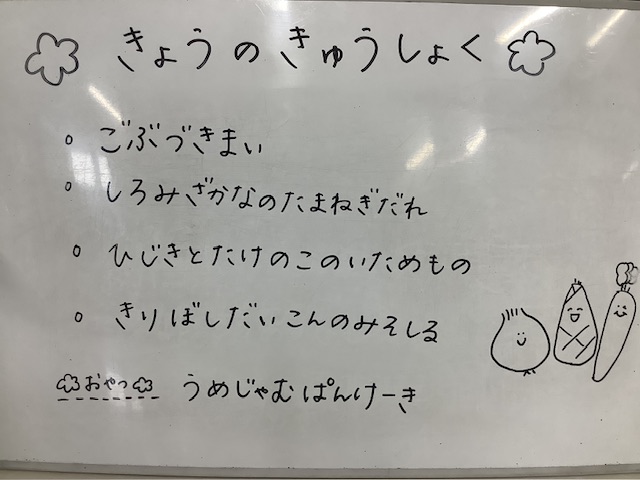 きょうのきゅうしょく
。ごぶづきまい
。しろみざかなのたまねぎだれ
。ひじきとたけのこのいためもの
。きりぼしだいこんのみそしる
おやつ うめじゃむぱんけーき